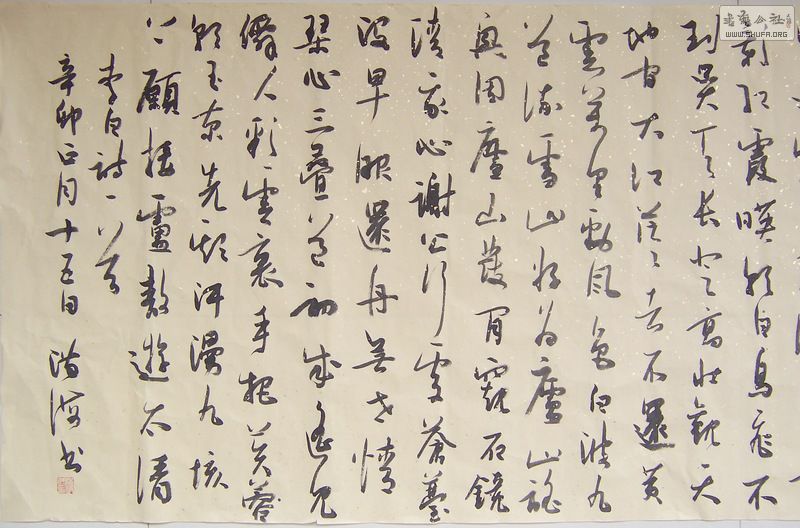 影紅霞暎朝日鳥飛不
到吳天長登高壯觀天
地間大江茫〻去不還黃
雲萬里動風色白波九
道流雪山好為廬山謠
興因廬山發閒窺石鏡
清我心謝公行處蒼薹
沒早服還丹無世情
琴心三疊道初成遙見
僊人彩雲裏手把芙蓉
朝玉京先期汗漫九垓
上願接盧敖遊太清
李白詩一首
辛卯正月十五日 書
书法公社
WWW.SHUFA.ORG